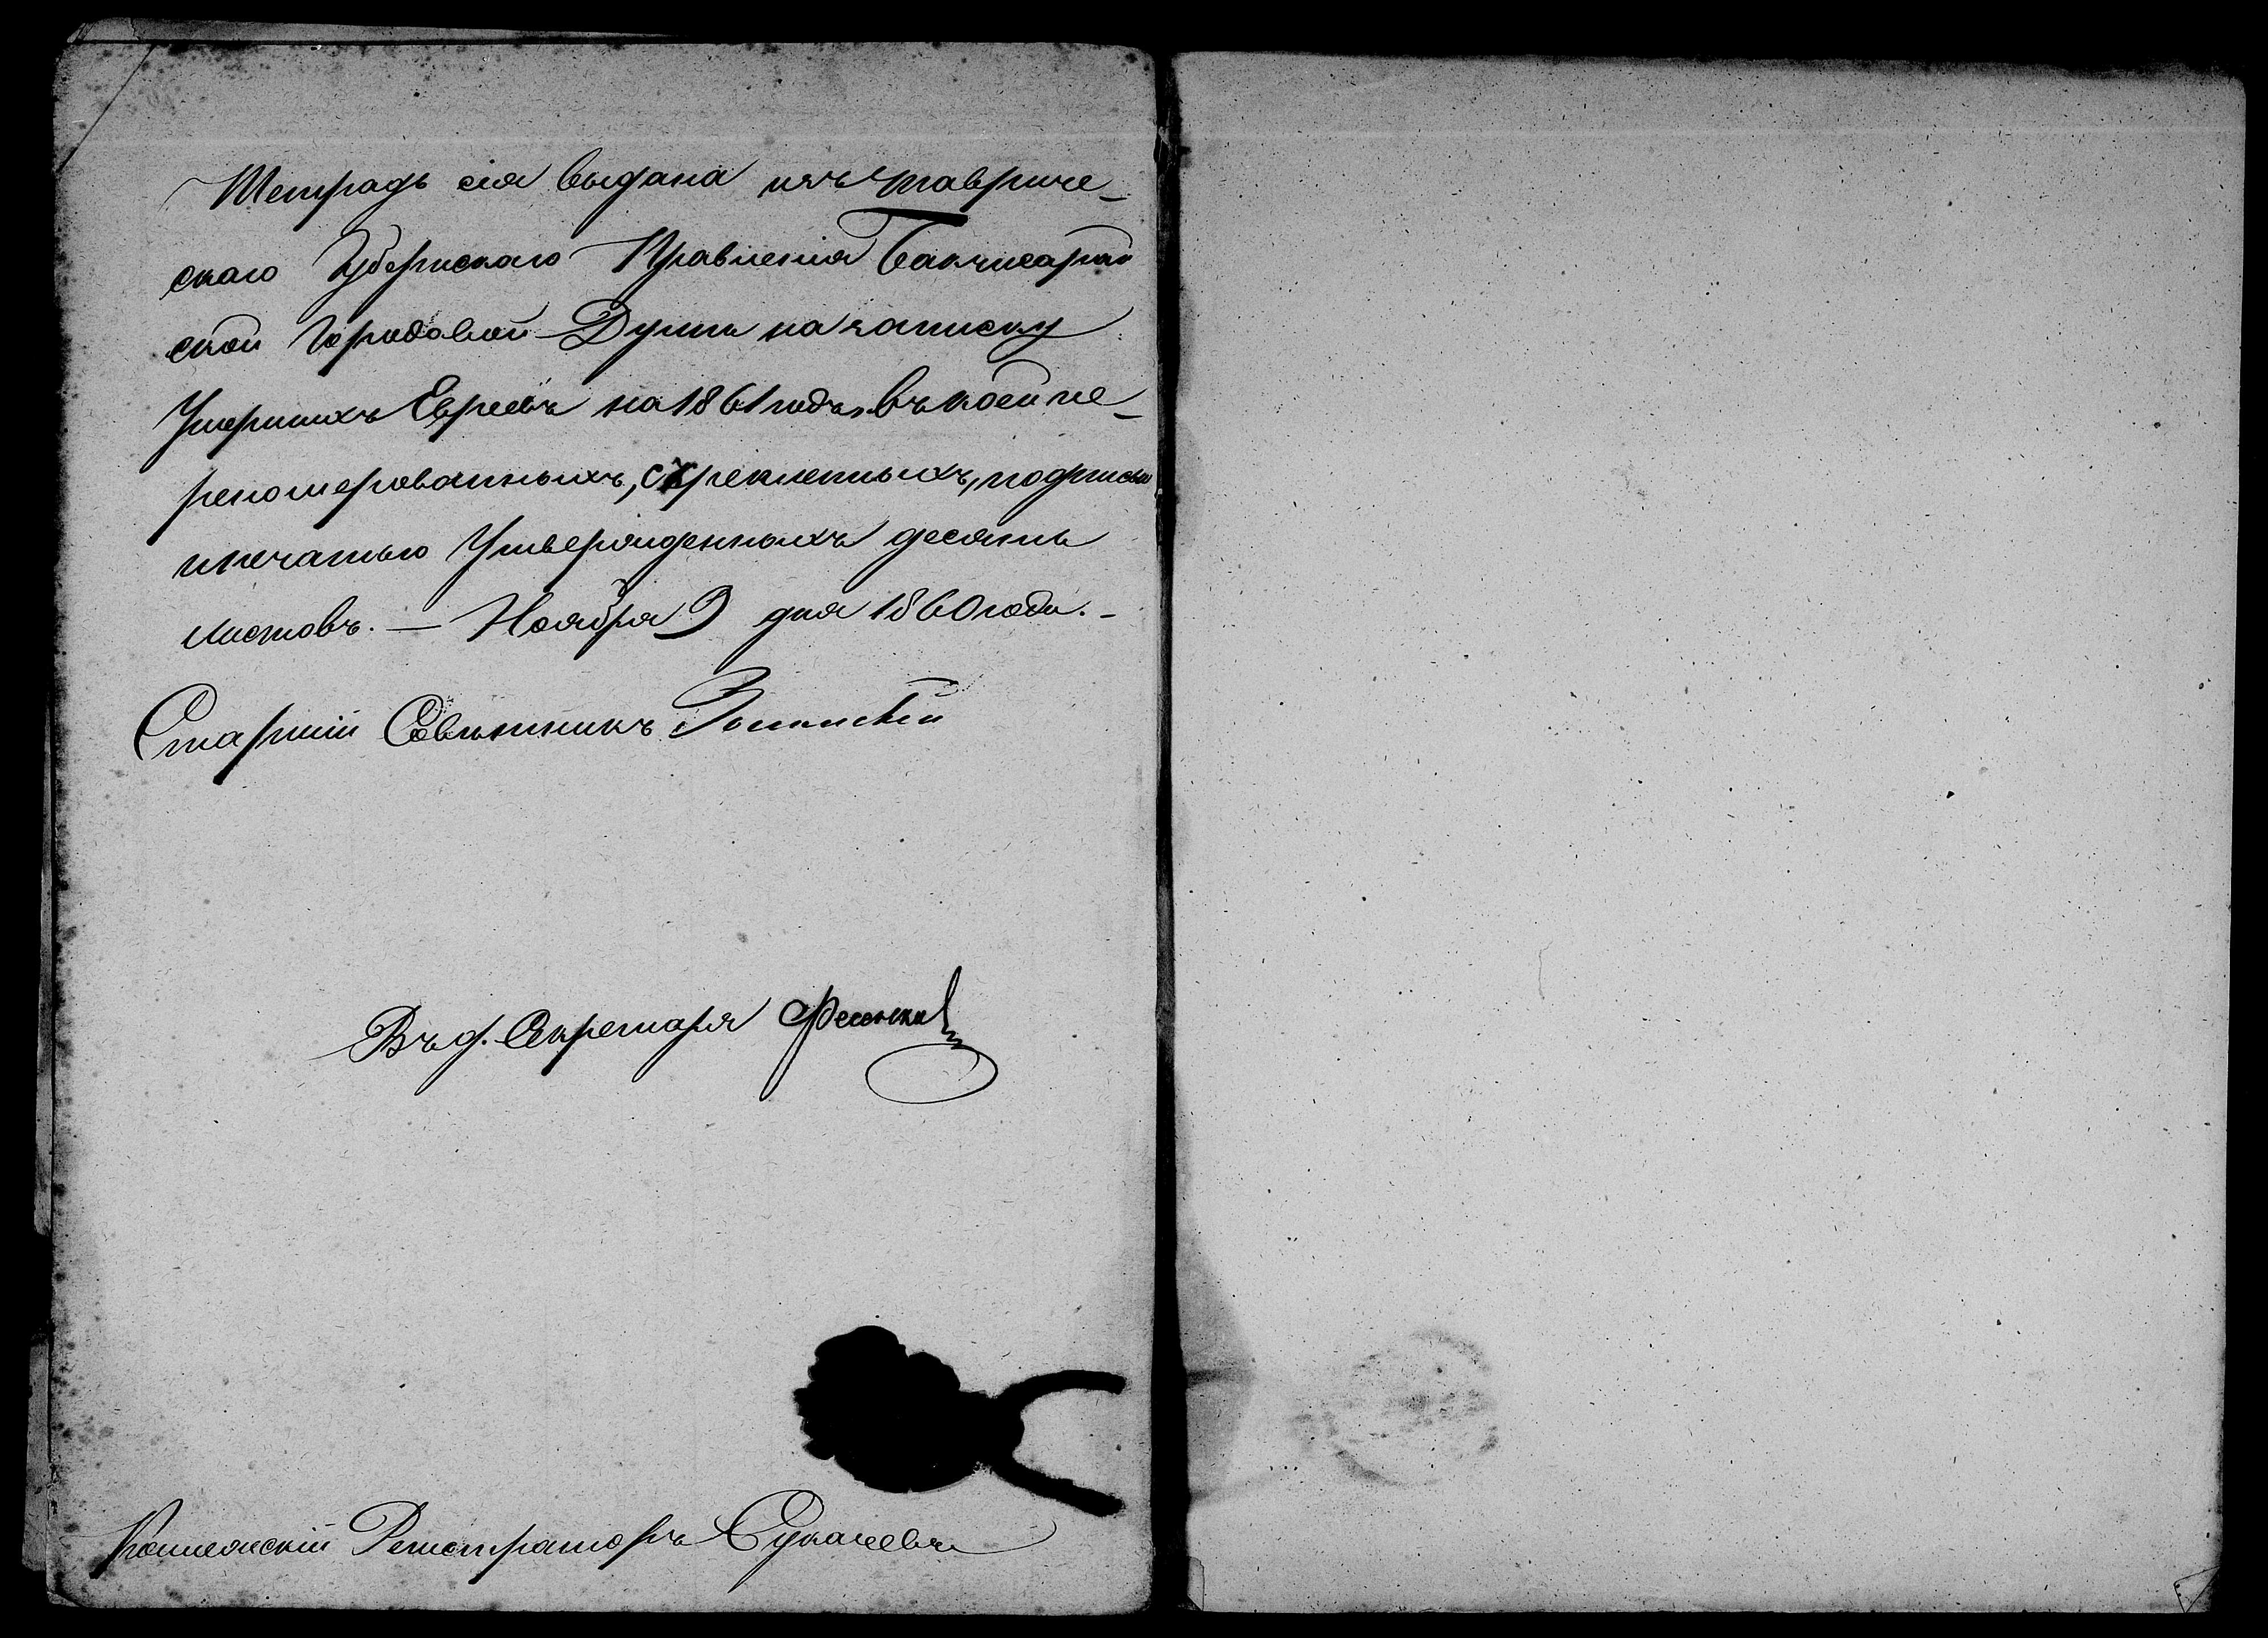 Тетрадь сія выдана изъ Тавриче-
скаго Губернскаго Правленія Бакчисарай
ской Городовой Думѣ на записку
Умершихъ Евреевъ на 1861 годъ. въ коей пе-
реномерованныхъ, скрепленныхъ, подписью
и печатью Утвержденныхъ десять
листовъ. — Ноября 9 дня 1860 года. -
Старшій Совѣтникъ
Въ д. Секретаря
Коллежскій Регистраторъ Сукачевъ